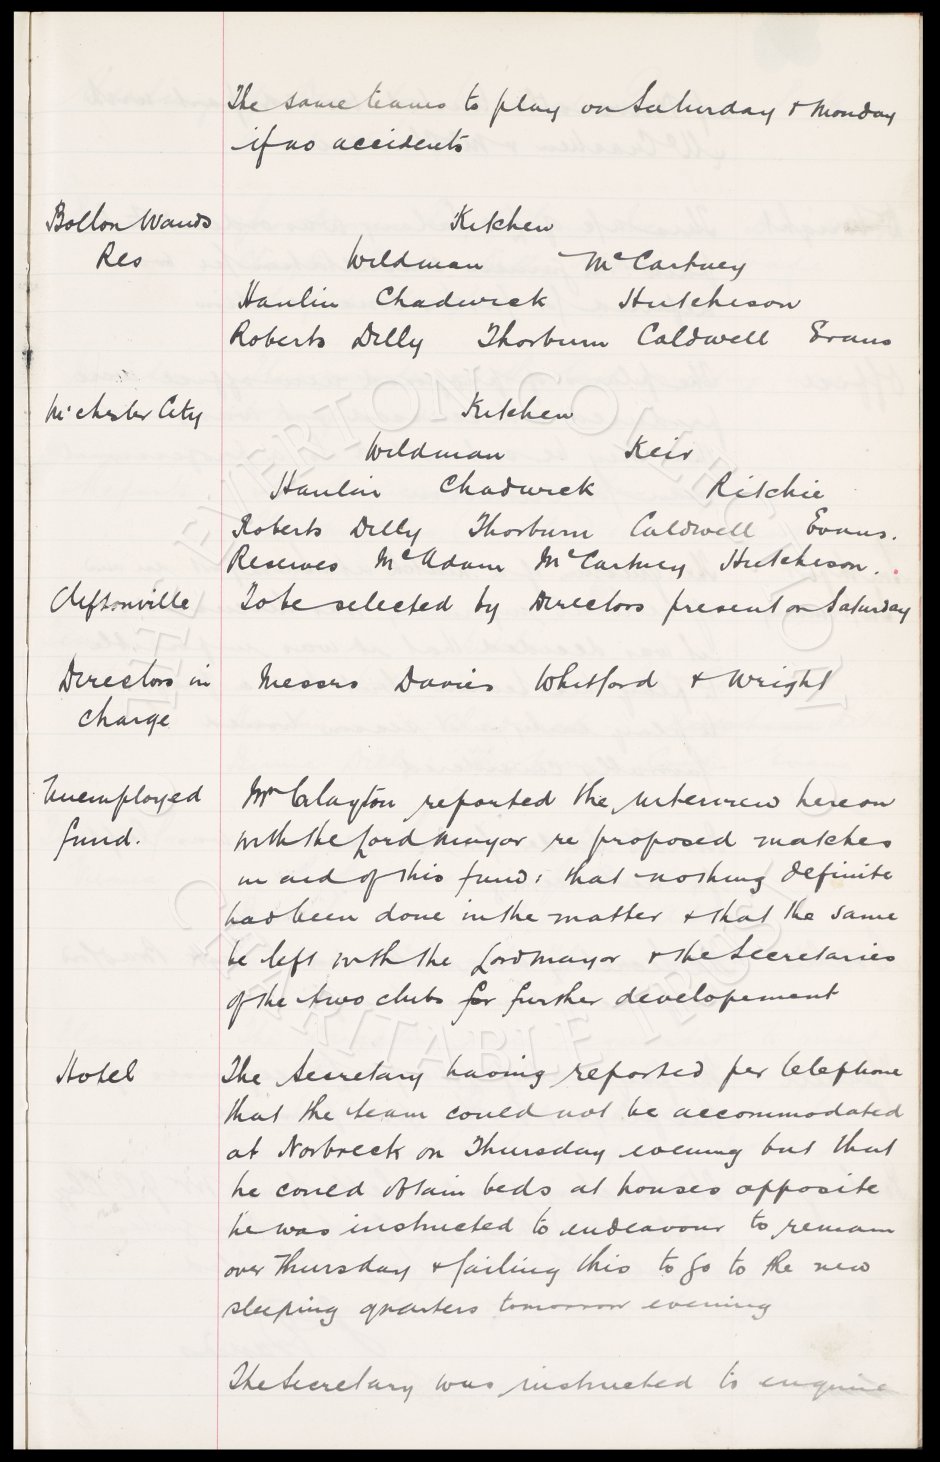 The same teams to play on Saturday & Monday
if no accidents
Bolton Wands Kitchen
Res Wildman McCartney
Hanlin Chadwick Hutcheson
Roberts Dilly Thorburn Caldwell Evans
M'chester City Kitchen
Wildman Keir
Hanlin Chadwick Ritchie
Roberts Dilly Thorburn Caldwell Evans.
Reserves McAdam McCartney Hutcheson.
Cliftonville To be selected by Directors present on Saturday
Directors in Messrs Davies Whitford & Wright
charge
Unemployed Mr Clayton reported the interview hereon
fund. with the Lord Mayor re proposed matches
in aid of this fund: that nothing definite
had been done in the matter & that the same
be left with the Lord Mayor & the Secretaries
of the two clubs for further developement
Hotel The Secretary having reported per telephone
that the team could not be accommodated
at Norbreck on Thursday evening but that
he could obtain beds at houses opposite
he was instructed to endeavour to remain
over Thursday & failing this to go to the new
sleeping quarters tomorrow evening
The Secretary was instructed to enquire
EVERTON COLLECTION
CHARITABLE TRUST